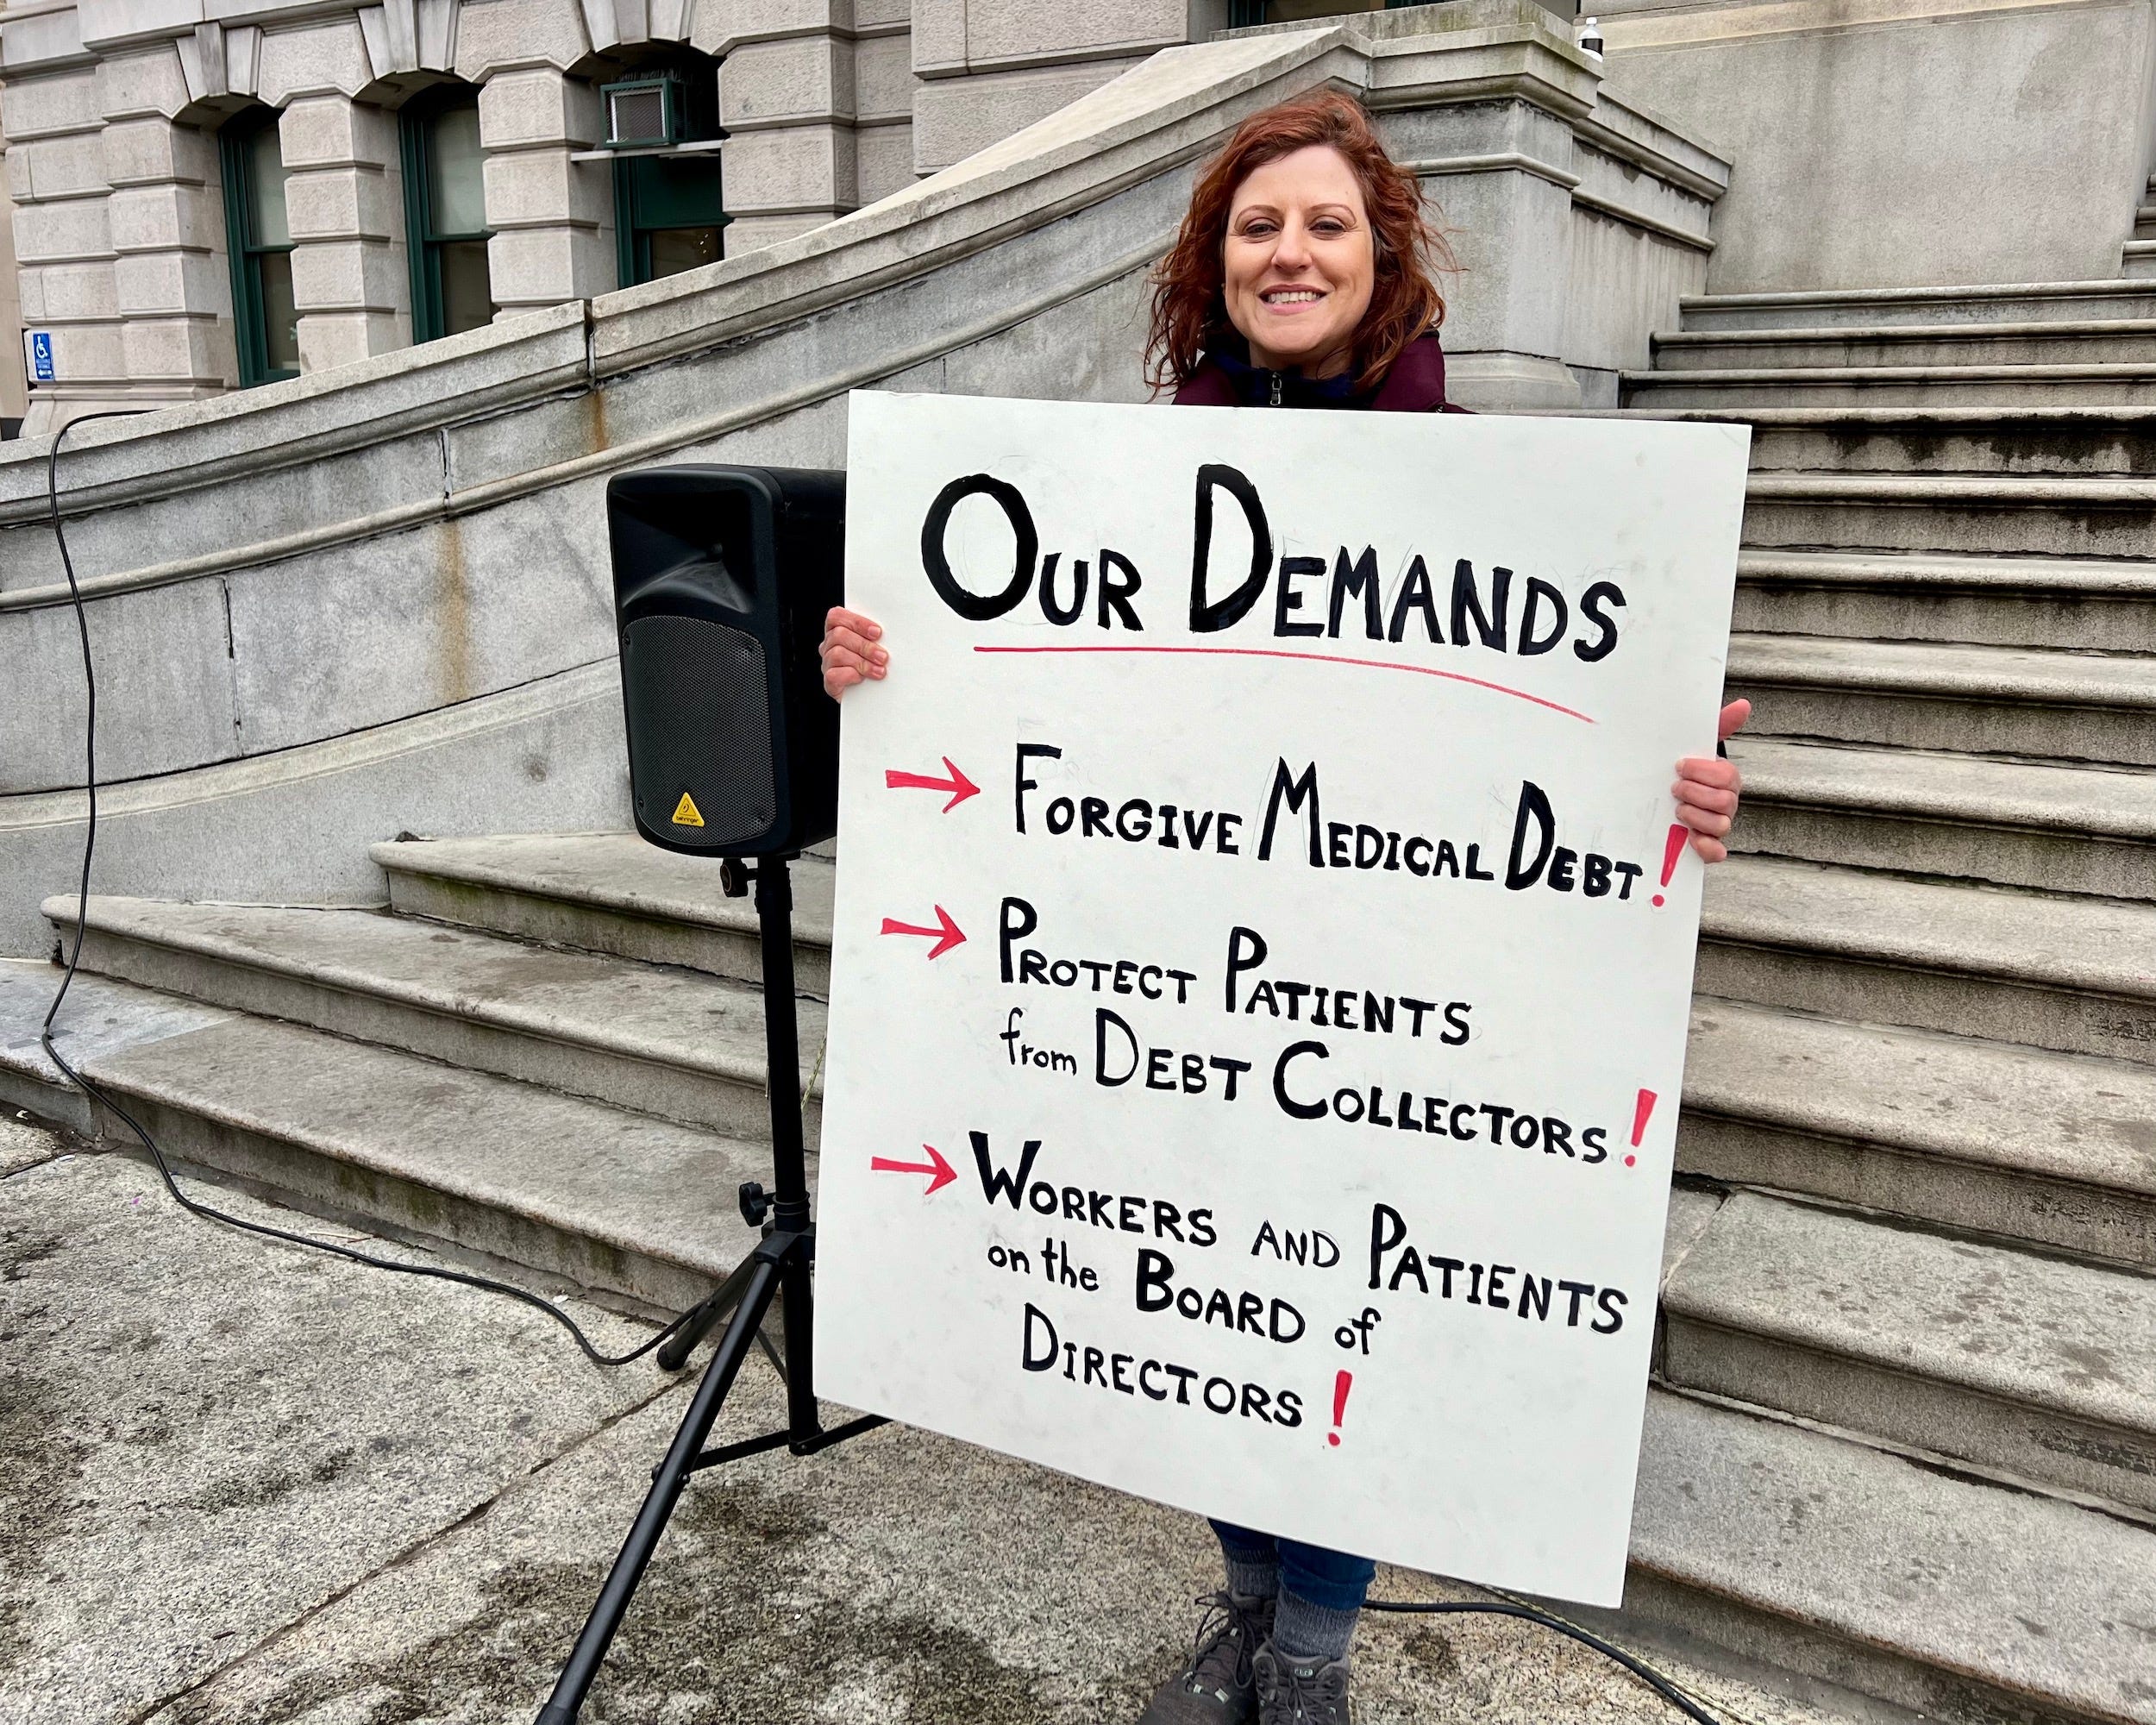 OUR DEMANDS
→ FORGIVE MEDICAL DEBT!
→ PROTECT PATIENTS
from DEBT COLLECTORS!
→ WORKERS AND PATIENTS
on the BOARD of
DIRECTORS!
behringer